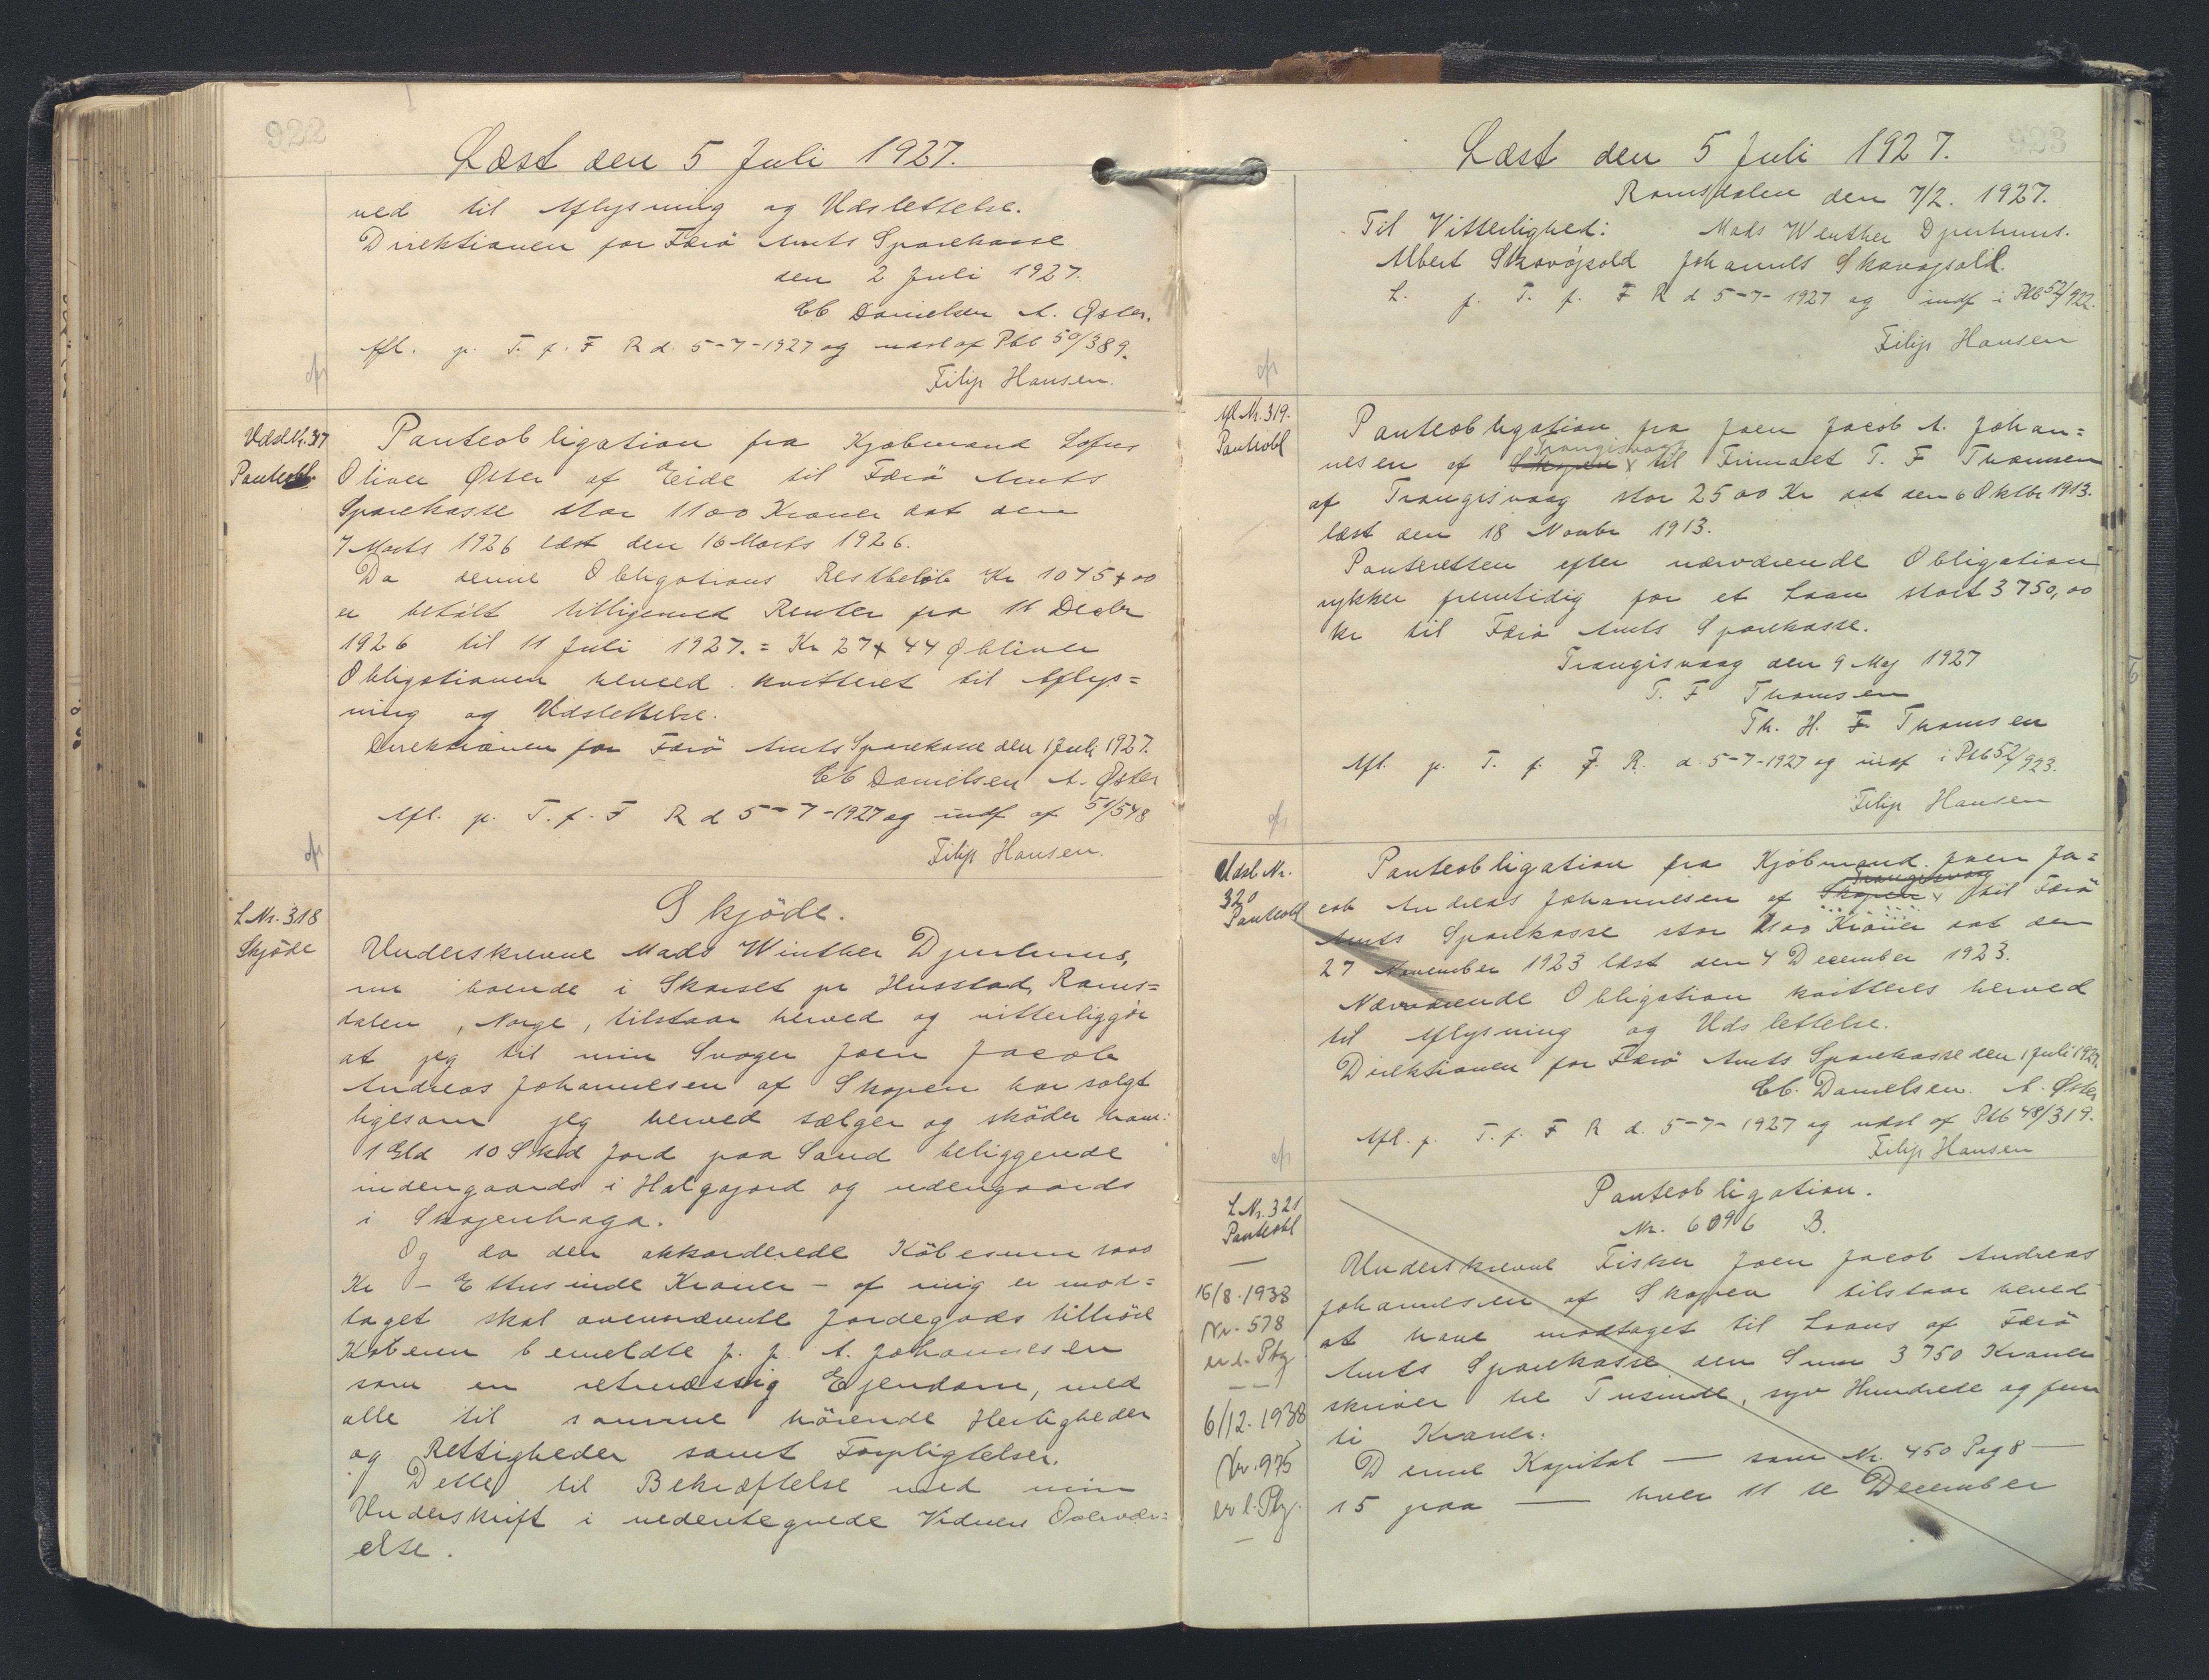 922
Læst den 5 Juli 1927.
ved til Aflysning og Udslettelse.
Direktionen for Færö Amts Sparekasse
den 2 Juli 1927.
Chr Danielsen A. Øster.
Afl. p. T. f. F R d. 5-7-1927 og udsl af Ptb 50/389.
Filip Hansen.
Udsl.Nr. 317
Panteobl.
Panteobligation fra Kjøbmand Lofus
Oliver Øster af Eide til Færö Amts
Sparekasse stor 1100 Kroner dat den
7 Marts 1926 læst den 16 Marts 1926.
Da denne Obligations Restbeløb Kr 1075+00
er betalt tilligemed Renter fra 11 Decbr
1926 til 11 Juli 1927. = Kr 27+44 Ø bliver
Obligationen herved kvitteret til Aflys=
ning og Udslettelse.
Direktionen for Færö Amts Sparekasse den 1 Juli 1927.
Chr Danielsen A. Øster
Afl. p. T. f. F R d 5-7-1927 og indf af 51/548
Filip Hansen.
L Nr. 318
Skjöde
Skjöde.
Underskrevne Mads Winther Djurhuus,
nu boende i Skorset pr Husstad, Roms=
dalen, Norge, tilstaar herved og vitterliggör
at jeg til min Svoger Joen Jacob
Andreas Johannesen af Skopen har solgt
ligesom jeg herved sælger og sköder ham:
1 Gld 10 Skd Jord paa Sand beliggende
indengaards i Halgajord og udengaards
i Skogenhaga.
Og da den akkorderede Köbesum saas
Kr - Ettusinde Kroner - af mig er mod=
taget skal ovennævnte Jordegods tilhöre
Köberen bemeldte J. J. A. Johannesen
som en retmæssig Ejendom, med
alle til samme hörende Herligheder
og Rettigheder samt Forpligtelser.
Dette til Bekræftelse med min
Underskrift i nedentegnede Vidners Overvær=
else.
923
Læst den 5 Juli 1927.
Romsdalen den 7/2. 1927.
Til Vitterlighed: Mads Winther Djurhuus.
Albert Skovöjsold Johannes Skovøjsold.
L. p. T. f. F R d 5-7-1927 og indf i Ptb 52/922.
Filip Hansen
Afl Nr. 319.
Panteobl
Panteobligation fra Joen Jacob A. Johan=
Trangisvaag
nesen af Skopen x til Firmaet T. F Thomsen
af Trangisvaag stor 2500 Kr dat den 6 Oktbr 1913.
læst den 18 Novbr 1913.
Panteretten efter nærværende Obligation
rykker fremtidig for et Laan stort 3750,00
kr til Færö Amts Sparekasse.
Trangisvaag den 9 Maj 1927
T. F Thomsen
Th. H. F Thomsen
Afl. p. T. f. F. R. d. 5-7-1927 og indf i Ptb 52/923.
Filip Hansen
Udsl Nr.
320
Panteobl
Panteobligation fra Kjöbmand Joen Ja=
Trangisvaag
cob Andreas Johannesen af Skopen x til Færö
Amts Sparekasse stor 1100 Kroner dat den
27 November 1923 læst den 4 December 1923.
Nærværende Obligation kvitteres herved
til Aflysning og Udslettelse.
Direktionen for Færö Amts Sparekasse den 1 Juli 1927.
Chr. Danielsen. A. Øster
Afl. p. T. f. F R d. 5-7-1927 og udsl af Ptb 48/319.
Filip Hansen
L Nr. 321
Panteobl
16/8. 1938
Nr. 578
er l. Ptg.
6/12. 1938
Nr. 975
er l. Ptg.
Panteobligation.
Nr. 6096 B.
Underskrevne Fisker Joen Jacob Andreas
Johannesen af Skopen tilstaar herved
at have modtaget til Laans af Færö
Amts Sparekasse den Sum 3750 Kroner
skriver tre Tusinde, syv Hundrede og fem
ti Kroner.
Denne Kapital — som Nr. 450 Pag 8 —
15 paa — hver 11 te December